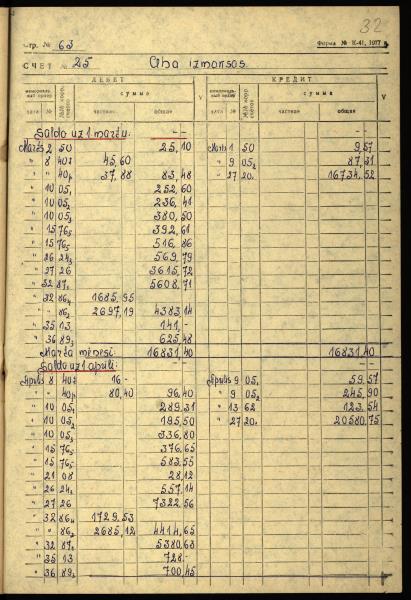 32
Стр. № 63 Форма № К-41, 1977
СЧЕТ № 25 Cha izmaksas.
ДЕБЕТ КРЕДИТ
суммы суммы
частные общие V частные общие V
Saldo uz 1 martu. -- --
Marts 2 50 25,10 Marts 1 50 9,57
" 8 40 45,60 " 9 05 87,31
" " 40 37,88 83,48 " 27 20 16734,52
" 10 05 252,60
" 10 05 236,41
" 10 05 380,50
" 15 76 392,61
" 15 76 516,86
" 26 24 569,79
" 27 26 3615,72
" 32 87 5608,71
" 32 86 1685,95
" " 86 2697,19 4383,14
" 35 13 141,-
" 36 89 625,48
Marta mēnesī: 16831,40 16831,40
Saldo uz 1 aprīli: -- --
Aprīlis 8 40 16- Aprīlis 9 05 59,57
" " 40 80,40 96,40 " 9 05 245,90
" 10 05 289,31 " 13 62 123,54
" 10 05 195,50 " 27 20 20580,75
" 10 05 336,80
" 15 76 376,65
" 15 76 583,55
" 21 08 28,12
" 26 24 557,14
" 27 26 7322,56
" 32 86 1729,53
" " 86 2685,12 4414,65
" 32 87 5380,68
" 35 13 728,-
" 36 89 700,45